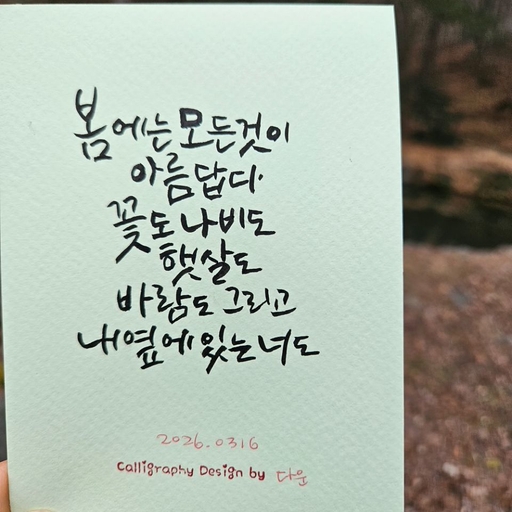 봄에는 모든것이
아름답다
꽃도 나비도
햇살도
바람도 그리고
내 옆에 있는 너도
2026.0316
Calligraphy Design by 다운